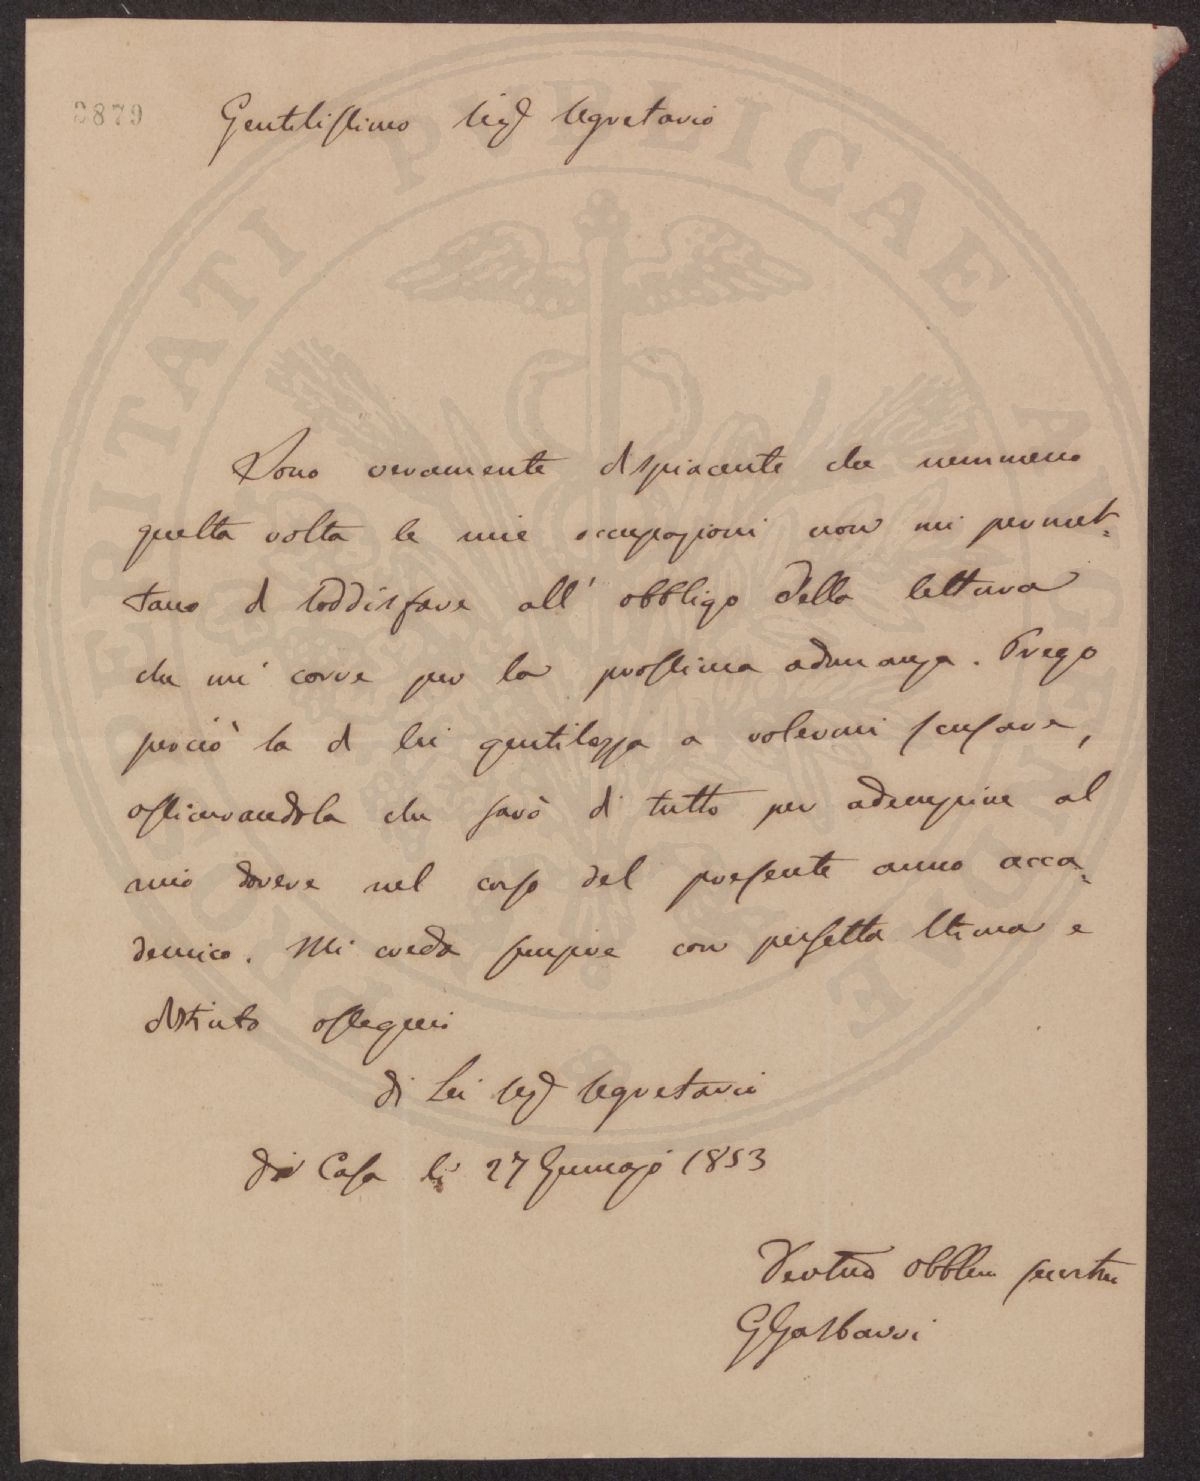 2879
Gentilissimo Sigr Segretario
Sono veramente dispiacente che nemmeno
questa volta le mie occupazioni non mi permet-
tano di soddisfare all' obbligo della lettura
che mi corre per la prossima adunanza. Prego
perciò la di lei gentilezza a volermi scusare,
assicurandola che farò di tutto per adempire al
mio dovere nel corso del presente anno acca-
demico. Mi creda sempre con perfetta stima e
distinto ossequio
di Lei Sigr Segretario
di Casa li 27 Gennajo 1853
Devmo Obblmo
G Gasbarri
PROSPERITATI PUBLICAE